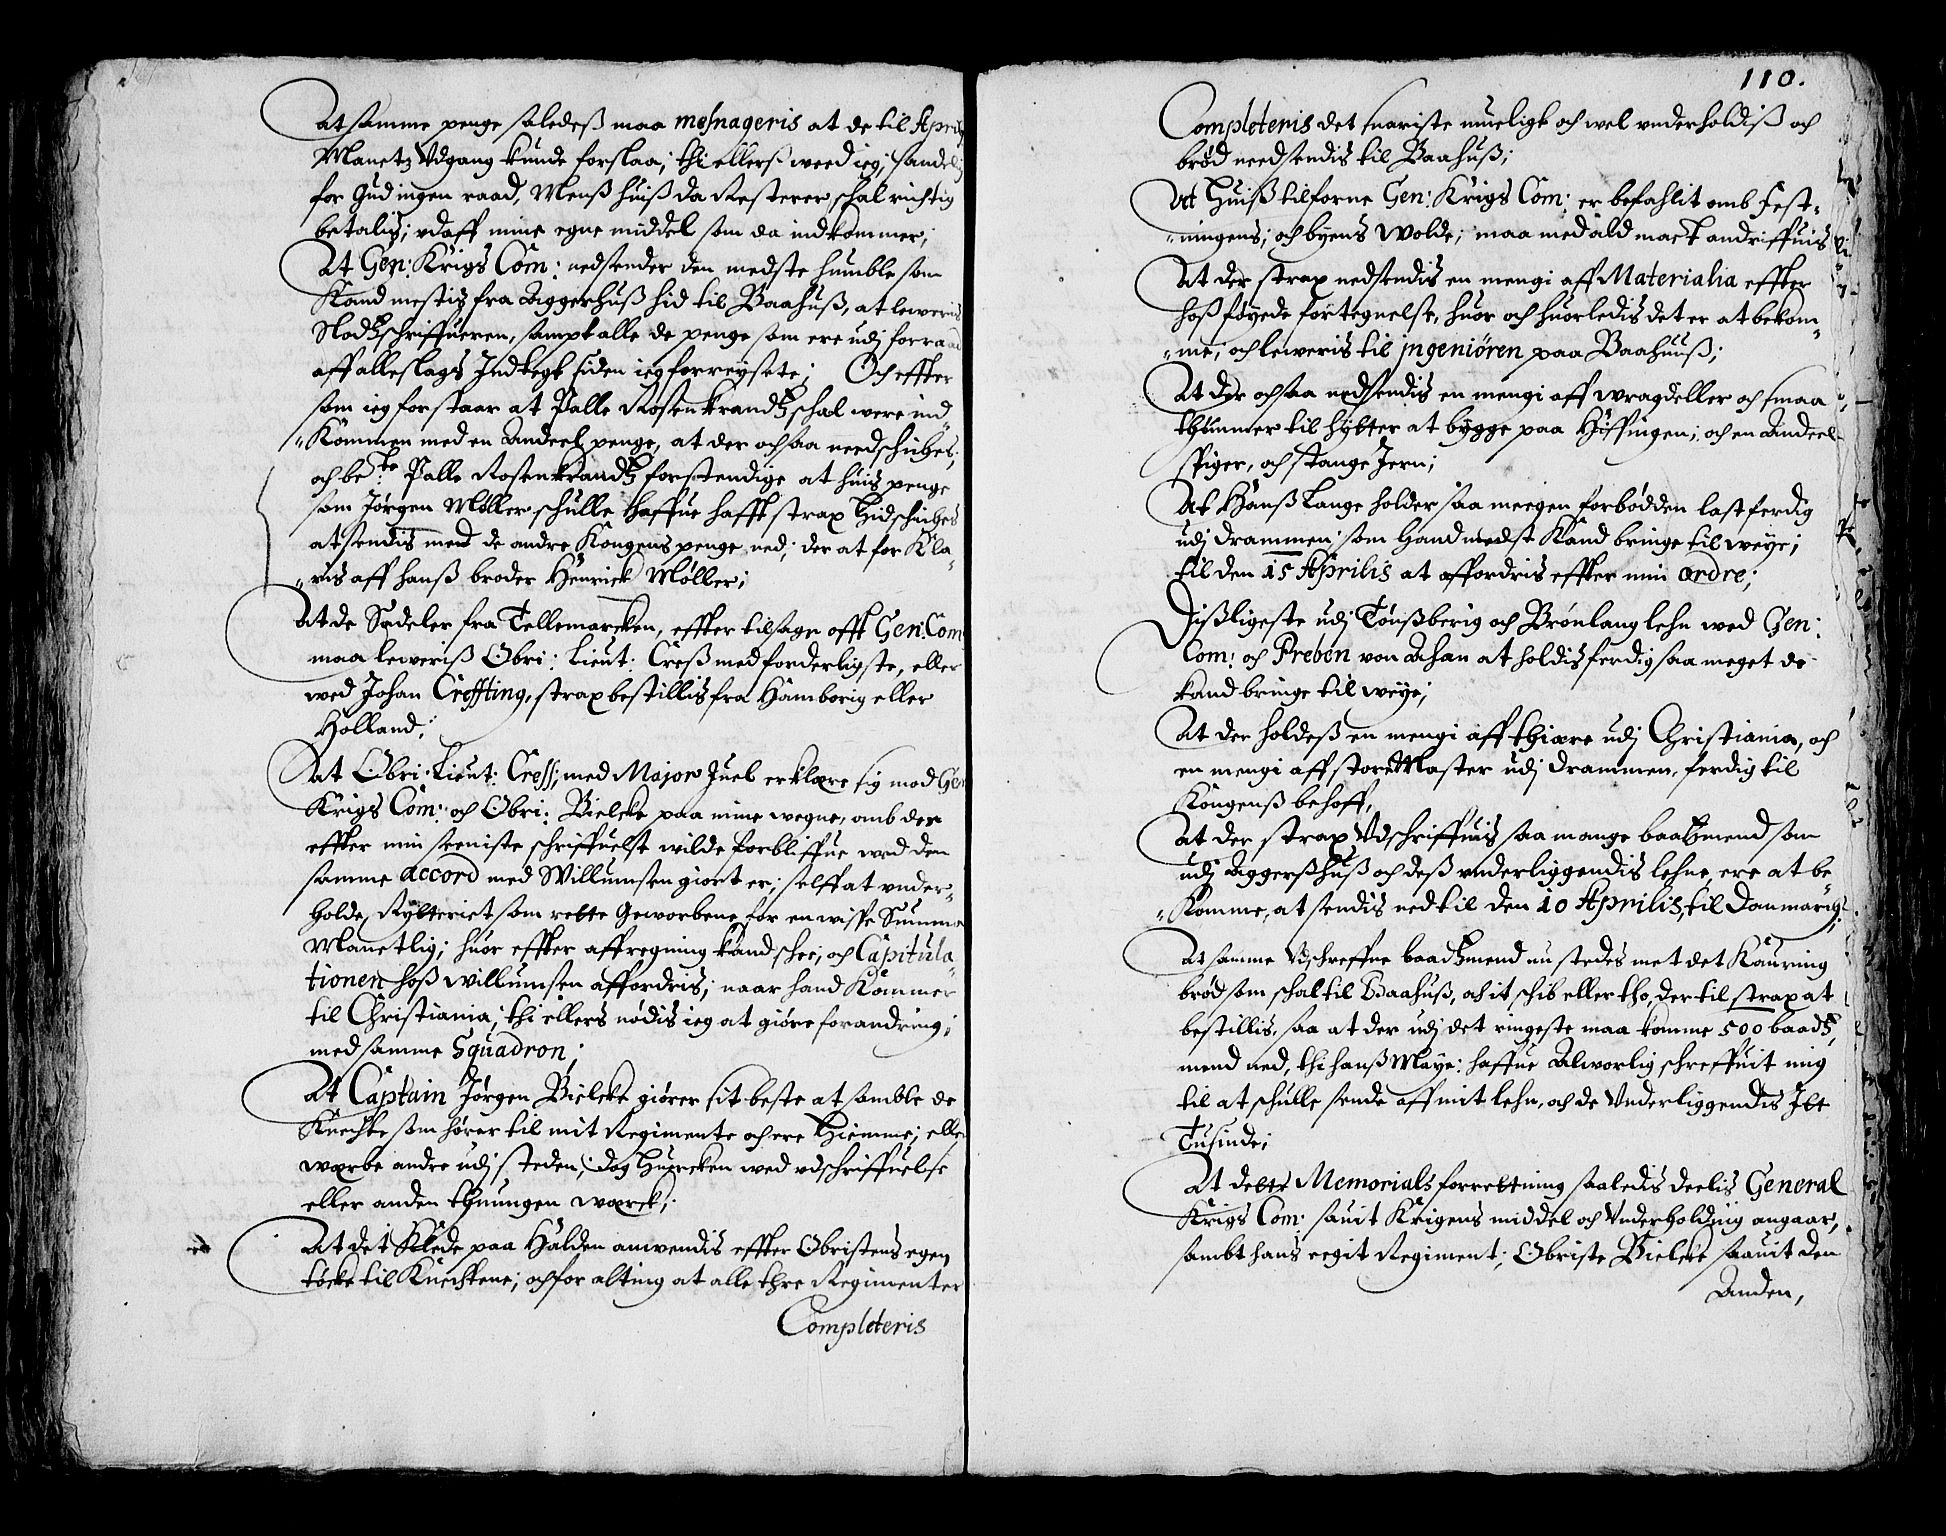 At samme penge saledeß maa mesnageris at de til Aprilis
Manetz Vdgang kunde forslaa; thi ellerß weed ieg, sandelig
for Gud ingen raad, Menß huiß da Resterer schal richtig
betalis; vdaff mine egne middel som da indkommer;
At Gen: Krigs Com: nedsender den medste humble som
Kand mestis fra Aggerhuß hid til Baahuß, at leweris
Slodtzschriffueren, sampt alle de penge som ere udj forraad
aff alleslags Indtegt siden ieg forreyste; Och effter
som ieg forstaar at Palle Rosenkrandtz schal were ind-
"Kommen med en Andeel penge, at der ochsaa needschickes;
och be:te Palle Rosenkrandtz forstendige at huis penge
som Jørgen Møller schulle haffue hafft strax hidschickes
at sendis med de andre Kongens penge ned; der at for Kla-
"ris aff hanß broder Henrick Møller;
At de Sadeler fra Tellemarcken, effter tilsagn offt Gen: Com:
maa leweriß Obri: Lieut: Creß med forderligste, eller
wed Johan Creffting, strax bestillis fra Hamborig eller
Holland;
At Obri: Lieut: Cress, med Major Juel erklære sig mod Gen
Krigs Com: och Obri: Bielcke paa mine wegne, omb der
effter min seeniste schriffuelse wilde forbliffue wed den
samme accord med Willumsen giort er; selff at vnder-
holde, Rytteriet som rette Geworbene for en wisse Summa
Manetlig; huor effter affregning kand schee; och Capitula-
tionen hoß Willumsen affordris; naar hand Kommer
til Christiania; thi ellers nødis ieg at giøre forandring;
med samme Squadron;
At Captain Jørgen Bielcke giører sit beste at samble de
Knechte som hører til mit Regimente och ere hiemme; eller
warbe andre udj steden; dog huercken wed vdschriffuelse
eller anden thuungen warck;
At det Klede paa Halden anwendis effter Obristens egen
tøcke til Knechtene; och for alting at alle thre Regimenter
Completeris
110.
Completeris det snariste mueligt och wel vnderholdiß och
brød needsendis til Baahuß;
At huiß tilforne Gen: Krigs Com: er befahlit omb Fest-
"ningens; och byens Wolde; maa med ald mact andriffuis
At der strax nedsendis en mengi aff Materialia effter
hoßføyede fortegnelse, huor och huorledis det er at bekom-
"me; och leweris til jngeniören paa Baahuuß;
At der ochsaa nedsendis en mengi aff wragdeller och smaa
thømmer til hytter at bygge paa Høffingen; och en Andeel
spiger, och stange Jern;
At Hanß Lange holder saa meegen forbødden last ferdig
udj Drammen som hand medst Kand bringe til weye;
til den 15 Aprilis at affordris effter min ordre;
Dißligeste udj Tønßberig och Brønlang lehn wed Gen:
Com: och Preben von Ahan at holdis ferdig saa meget de
kand bringe til weye;
At der holdeß en mengi aff thiære udj Christiania, och
en mengi aff store Master udj Drammen, ferdig til
Kongenß behoff,
At der strax Vdschriffuis saa mange baadtzmend som
udj Aggerßhuß och deß vnderliggendis lehne, ere at be
"Komme, at sendis ned til den 10 Aprilis, til Danmarck;
At samme Vdschreffne baadtzmend nu stedes met det Kauring
brød som schal til Baahuß, och it schib eller tho, der til strax at
bestillis, saa at der udj det ringeste maa komme 500 baadtz,
mend ned, thi hanß Maye: haffue Alworlig schreffuit mig
til at schulle sende aff mit lehn, och de Vnderliggendis Itt
Tusinde;
At dette Memorials forretning saaledis deelis General
Krigs Com: sauit Krigens middel och Vnderholding angaar,
sambt hans eegit Regiment; Obriste Bielcke saauit den
Anden,